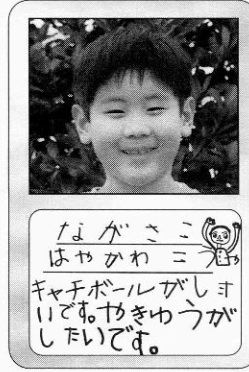 ながさこ
はやかわ こうや
キャチボールがしま
いです。やきゅうが
したいです。